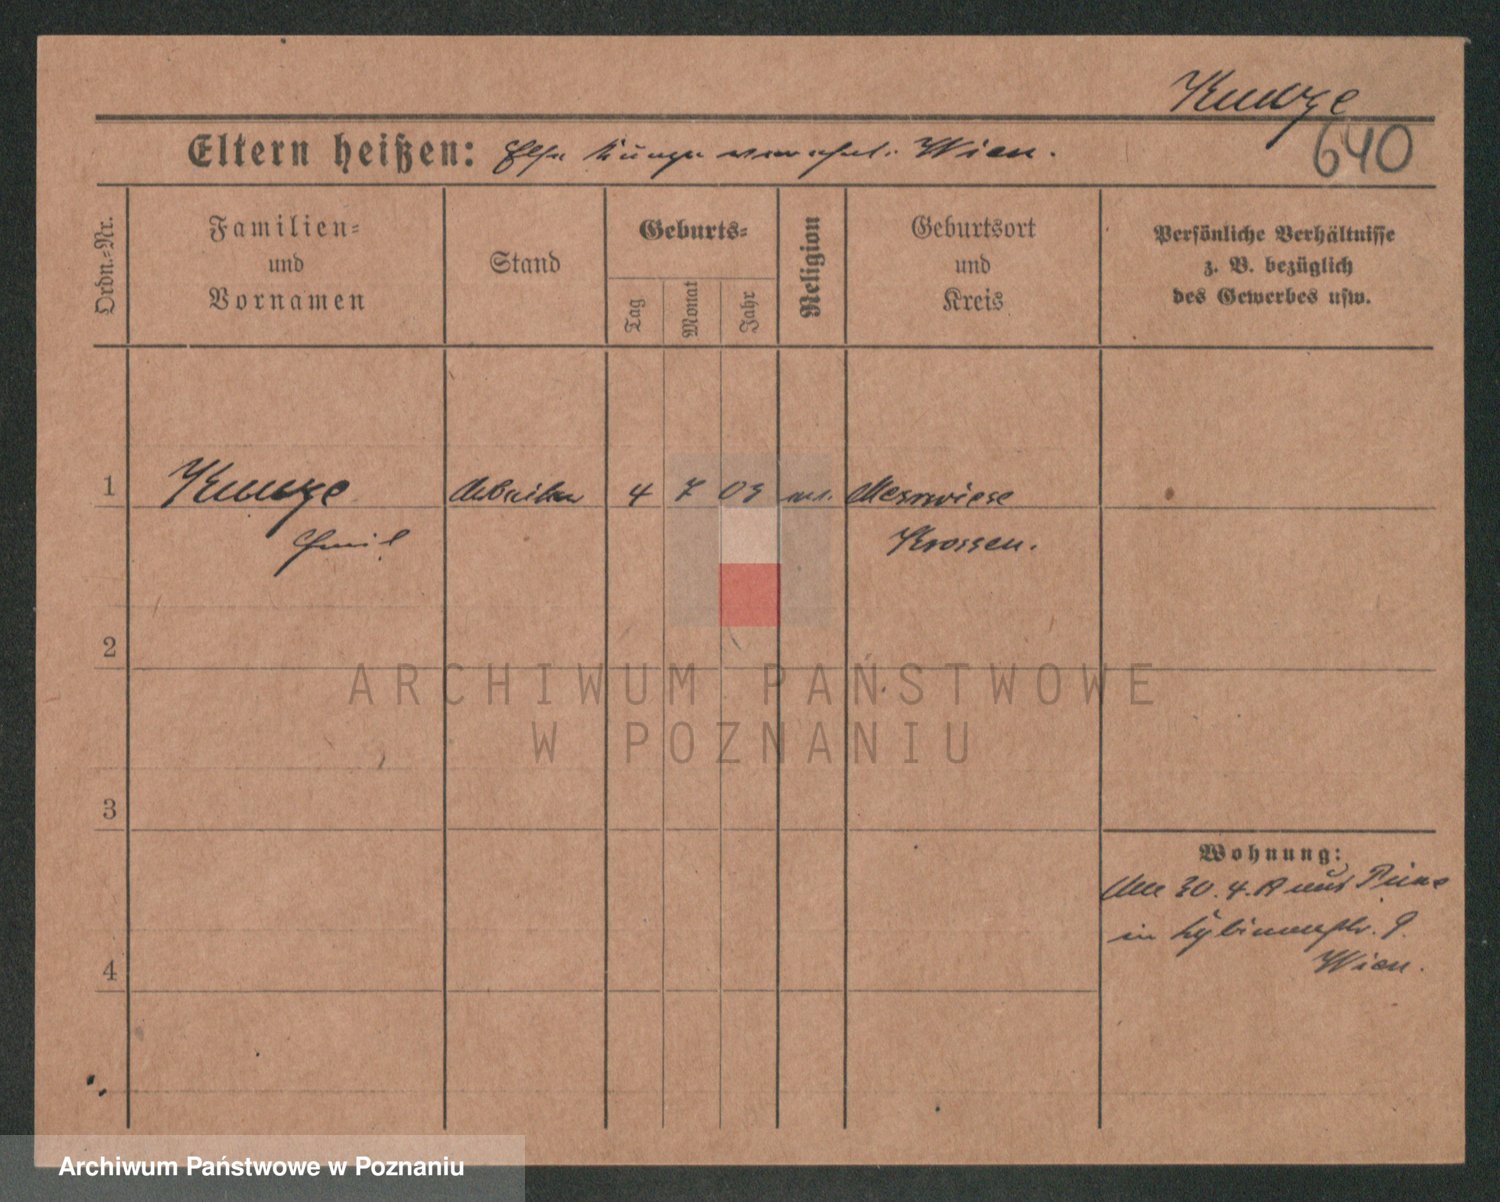 Kunze
640
Eltern heißen: Else Kunze verehel. Wien.
Ordn.=Nr.
Familien=
und
Vornamen
Stand
Geburts=
Tag
Monat
Jahr
Religion
Geburtsort
und
Kreis
Persönliche Verhältnisse
z. B. bezüglich
des Gewerbes usw.
1 Kunze Arbeiter 4 7 03 ev. Merzwiese
Emil Krossen.
2
ARCHIWUM PAŃSTWOWE
W POZNANIU
3
Wohnung:
30. 4. aus
in 9.
4
Wien.
Archiwum Państwowe w Poznaniu